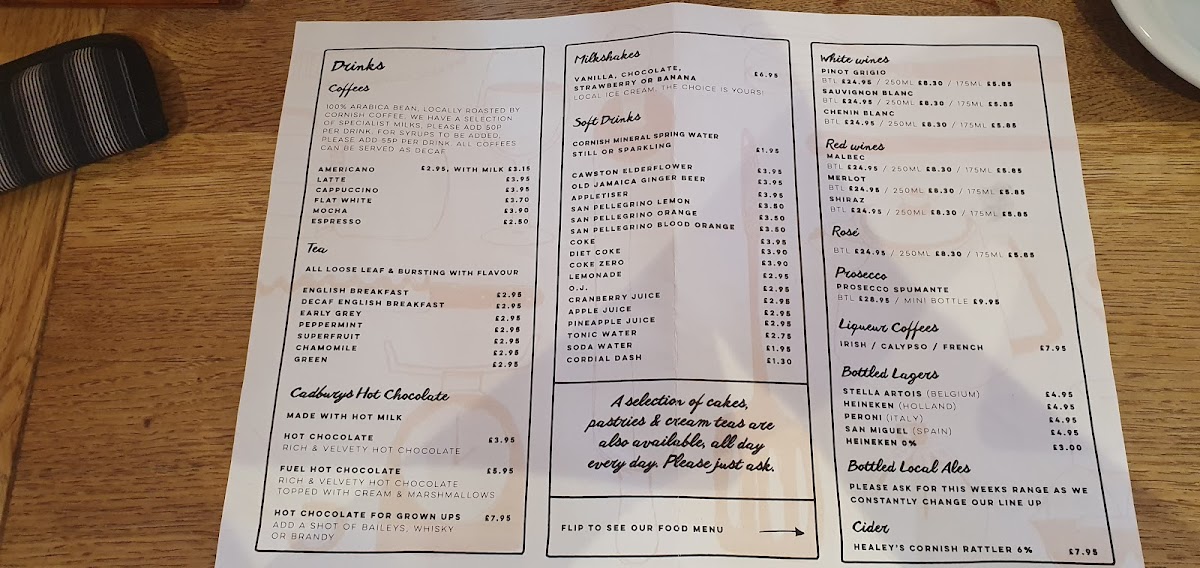 Drinks
Coffees
100% ARABICA BEAN, LOCALLY ROASTED BY
CORNISH COFFEE. WE HAVE A SELECTION
OF SPECIALIST MILKS, PLEASE ADD 50P
PER DRINK. FOR SYRUPS TO BE ADDED,
PLEASE ADD 55P PER DRINK. ALL COFFEES
CAN BE SERVED AS DECAF
AMERICANO £2.95, WITH MILK £3.15
LATTE £3.95
CAPPUCCINO £3.95
FLAT WHITE £3.70
MOCHA £3.90
ESPRESSO £2.50
Tea
ALL LOOSE LEAF & BURSTING WITH FLAVOUR
ENGLISH BREAKFAST £2.95
DECAF ENGLISH BREAKFAST £2.95
EARLY GREY £2.95
PEPPERMINT £2.95
SUPERFRUIT £2.95
CHAMOMILE £2.95
GREEN £2.95
Cadburys Hot Chocolate
MADE WITH HOT MILK
HOT CHOCOLATE £3.95
RICH & VELVETY HOT CHOCOLATE
FUEL HOT CHOCOLATE £5.95
RICH & VELVETY HOT CHOCOLATE
TOPPED WITH CREAM & MARSHMALLOWS
HOT CHOCOLATE FOR GROWN UPS £7.95
ADD A SHOT OF BAILEYS, WHISKY
OR BRANDY
Milkshakes
VANILLA, CHOCOLATE, £6.95
STRAWBERRY OR BANANA
LOCAL ICE CREAM, THE CHOICE IS YOURS!
Soft Drinks
CORNISH MINERAL SPRING WATER
STILL OR SPARKLING £1.95
CAWSTON ELDERFLOWER £3.95
OLD JAMAICA GINGER BEER £3.95
APPLETISER £3.95
SAN PELLEGRINO LEMON £3.50
SAN PELLEGRINO ORANGE £3.50
SAN PELLEGRINO BLOOD ORANGE £3.50
COKE £3.95
DIET COKE £3.90
COKE ZERO £3.90
LEMONADE £2.95
O.J. £2.95
CRANBERRY JUICE £2.95
APPLE JUICE £2.95
PINEAPPLE JUICE £2.95
TONIC WATER £2.75
SODA WATER £1.95
CORDIAL DASH £1.30
A selection of cakes,
pastries & cream teas are
also available, all day
every day. Please just ask.
FLIP TO SEE OUR FOOD MENU
White wines
PINOT GRIGIO
BTL £24.95 / 250ML £8.30 / 175ML £5.85
SAUVIGNON BLANC
BTL £24.95 / 250ML £8.30 / 175ML £5.85
CHENIN BLANC
BTL £24.95 / 250ML £8.30 / 175ML £5.85
Red wines
MALBEC
BTL £24.95 / 250ML £8.30 / 175ML £5.85
MERLOT
BTL £24.95 / 250ML £8.30 / 175ML £5.85
SHIRAZ
BTL £24.95 / 250ML £8.30 / 175ML £5.85
Rosé
BTL £24.95 / 250ML £8.30 / 175ML £5.85
Prosecco
PROSECCO SPUMANTE
BTL £28.95 / MINI BOTTLE £9.95
Liqueur Coffees
IRISH / CALYPSO / FRENCH £7.95
Bottled Lagers
STELLA ARTOIS (BELGIUM) £4.95
HEINEKEN (HOLLAND) £4.95
PERONI (ITALY) £4.95
SAN MIGUEL (SPAIN) £4.95
HEINEKEN 0% £3.00
Bottled Local Ales
PLEASE ASK FOR THIS WEEKS RANGE AS WE
CONSTANTLY CHANGE OUR LINE UP
Cider
HEALEY'S CORNISH RATTLER 6% £7.95